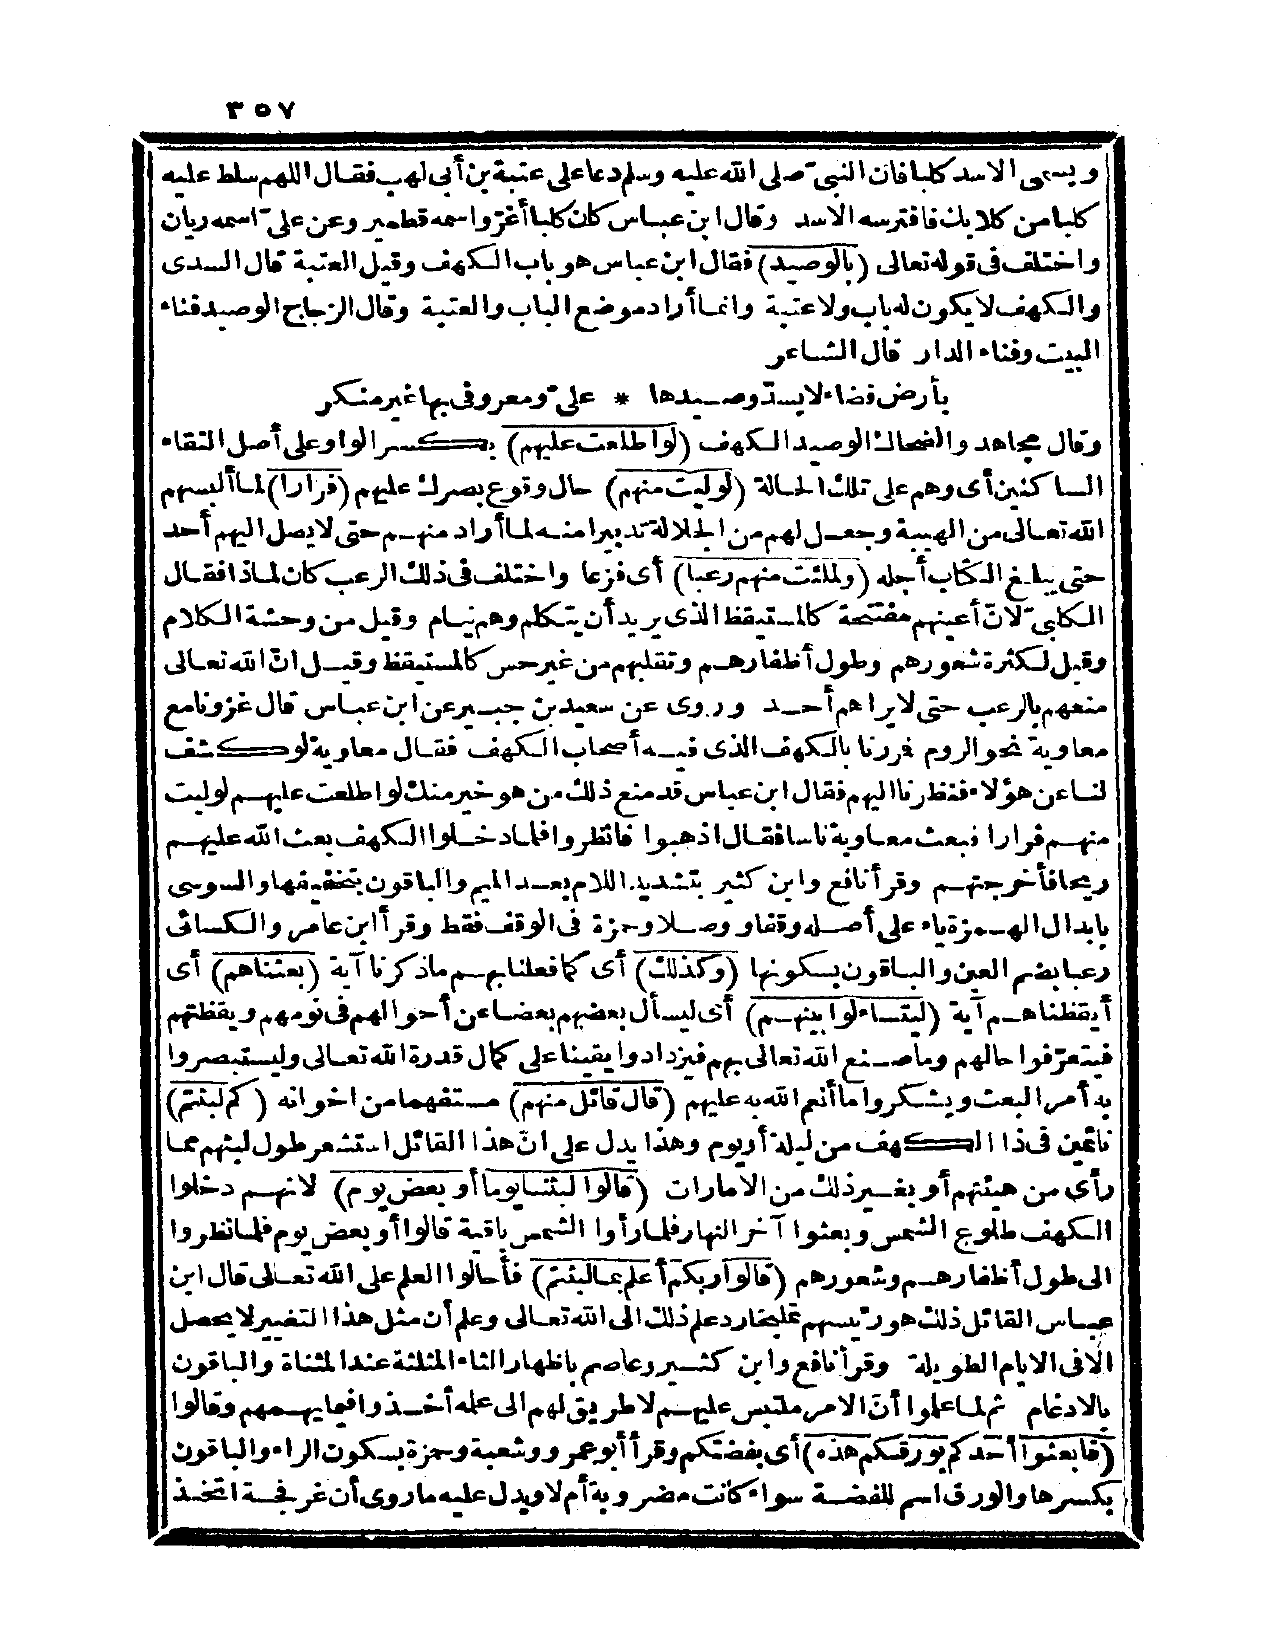 ٣٥٧
ويسمى الاسد كلبا فان النبىّ صلى الله عليه وسلم دعا على عتبة بن أبى لهب فقال اللهم سلط عليه
كلبا من كلابك فافترسه الاسد وقال ابن عباس كان كلبا أغرّ واسمه قطمير وعن علىّ اسمه ريان
واختلف فى قوله تعالى (بالوصيد) فقال ابن عباس هو باب الكهف وقيل العتبة قال السدى
والكهف لا يكون له باب ولا عتبة وانما أراد موضع الباب والعتبة وقال الزجاج الوصيد فناء
البيت وفناء الدار قال الشاعر
بأرض فضاء لا يسدّ وصيدها * علىّ ومعروفى بها غير منكر
وقال مجاهد والضحاك الوصيد الكهف (لو اطلعت عليهم) بكسر الواو على أصل التقاء
الساكنين أى وهم على تلك الحالة (لوليت منهم) حال وقوع بصرك عليهم (فرارا) لما ألبسهم
الله تعالى من الهيبة وجعل لهم من الجلالة تدبيرا منه لما أراد منهم حتى لا يصل اليهم أحد
حتى يبلغ الكتاب أجله (ولملئت منهم رعبا) أى فزعا واختلف فى ذلك الرعب كان لماذا فقال
الكلبىّ لانّ أعينهم مفتحة كالمستيقظ الذى يريد أن يتكلم وهم نيام وقيل من وحشة الكلام
وقيل لكثرة شعورهم وطول أظفارهم وتقلبهم من غير حس كالمستيقظ وقيل انّ الله تعالى
منعهم بالرعب حتى لا يراهم أحد وروى عن سعيد بن جبير عن ابن عباس قال غزونا مع
معاوية نحو الروم فمررنا بالكهف الذى فيه أصحاب الكهف فقال معاوية لو كشف
لنا عن هؤلاء فنظرنا اليهم فقال ابن عباس قد منع ذلك من هو خير منك لو اطلعت عليهم لوليت
منهم فرارا فبعث معاوية ناسا فقال اذهبوا فانظروا فلما دخلوا الكهف بعث الله عليهم
ريحا فأخرجتهم وقرأ نافع وابن كثير بتشديد اللام بعد الميم والباقون بتخفيفها والسوسى
بابدال الهمزة ياء على أصله وقفا ووصلا وحمزة فى الوقف فقط وقرأ ابن عامر والكسائى
رعبا بضم العين والباقون بسكونها (وكذلك) أى كما فعلنا بهم ما ذكرنا آية (بعثناهم) أى
أيقظناهم آية (ليتساءلوا بينهم) أى ليسأل بعضهم بعضا عن أحوالهم فى نومهم ويقظتهم
فيتعرّفوا حالهم وما صنع الله تعالى بهم فيزدادوا يقينا على كمال قدرة الله تعالى وليستبصروا
به أمر البعث ويشكروا ما أنعم الله به عليهم (قال قائل منهم) مستفهما من اخوانه (كم لبثتم)
نائمين فى ذا الكهف من ليلة أو يوم وهذا يدل على انّ هذا القائل استشعر طول لبثهم مما
رأى من هيئتهم أو بغير ذلك من الامارات (قالوا لبثنا يوما أو بعض يوم) لانهم دخلوا
الكهف طلوع الشمس وبعثوا آخر النهار فلما رأوا الشمس باقية قالوا أو بعض يوم فلما نظروا
الى طول أظفارهم وشعورهم (قالوا ربكم أعلم بما لبثتم) فأحالوا العلم على الله تعالى قال ابن
عباس القائل ذلك هو رئيسهم تمليخا رد علم ذلك الى الله تعالى وعلم أن مثل هذا التغير لا يحصل
الا فى الايام الطويلة وقرأ نافع وابن كثير وعاصم باظهار الثاء المثلثة عند المثناة والباقون
بالادغام ثم لما علموا أنّ الامر ملتبس عليهم لا طريق لهم الى علمه أخذوا فيما يهمهم وقالوا
(فابعثوا أحدكم بورقكم هذه) أى بفضتكم وقرأ أبو عمرو وشعبة وحمزة بسكون الراء والباقون
بكسرها والورق اسم للفضة سواء كانت مضروبة أم لا ويدل عليه ما روى أن عرفجة اتخذ